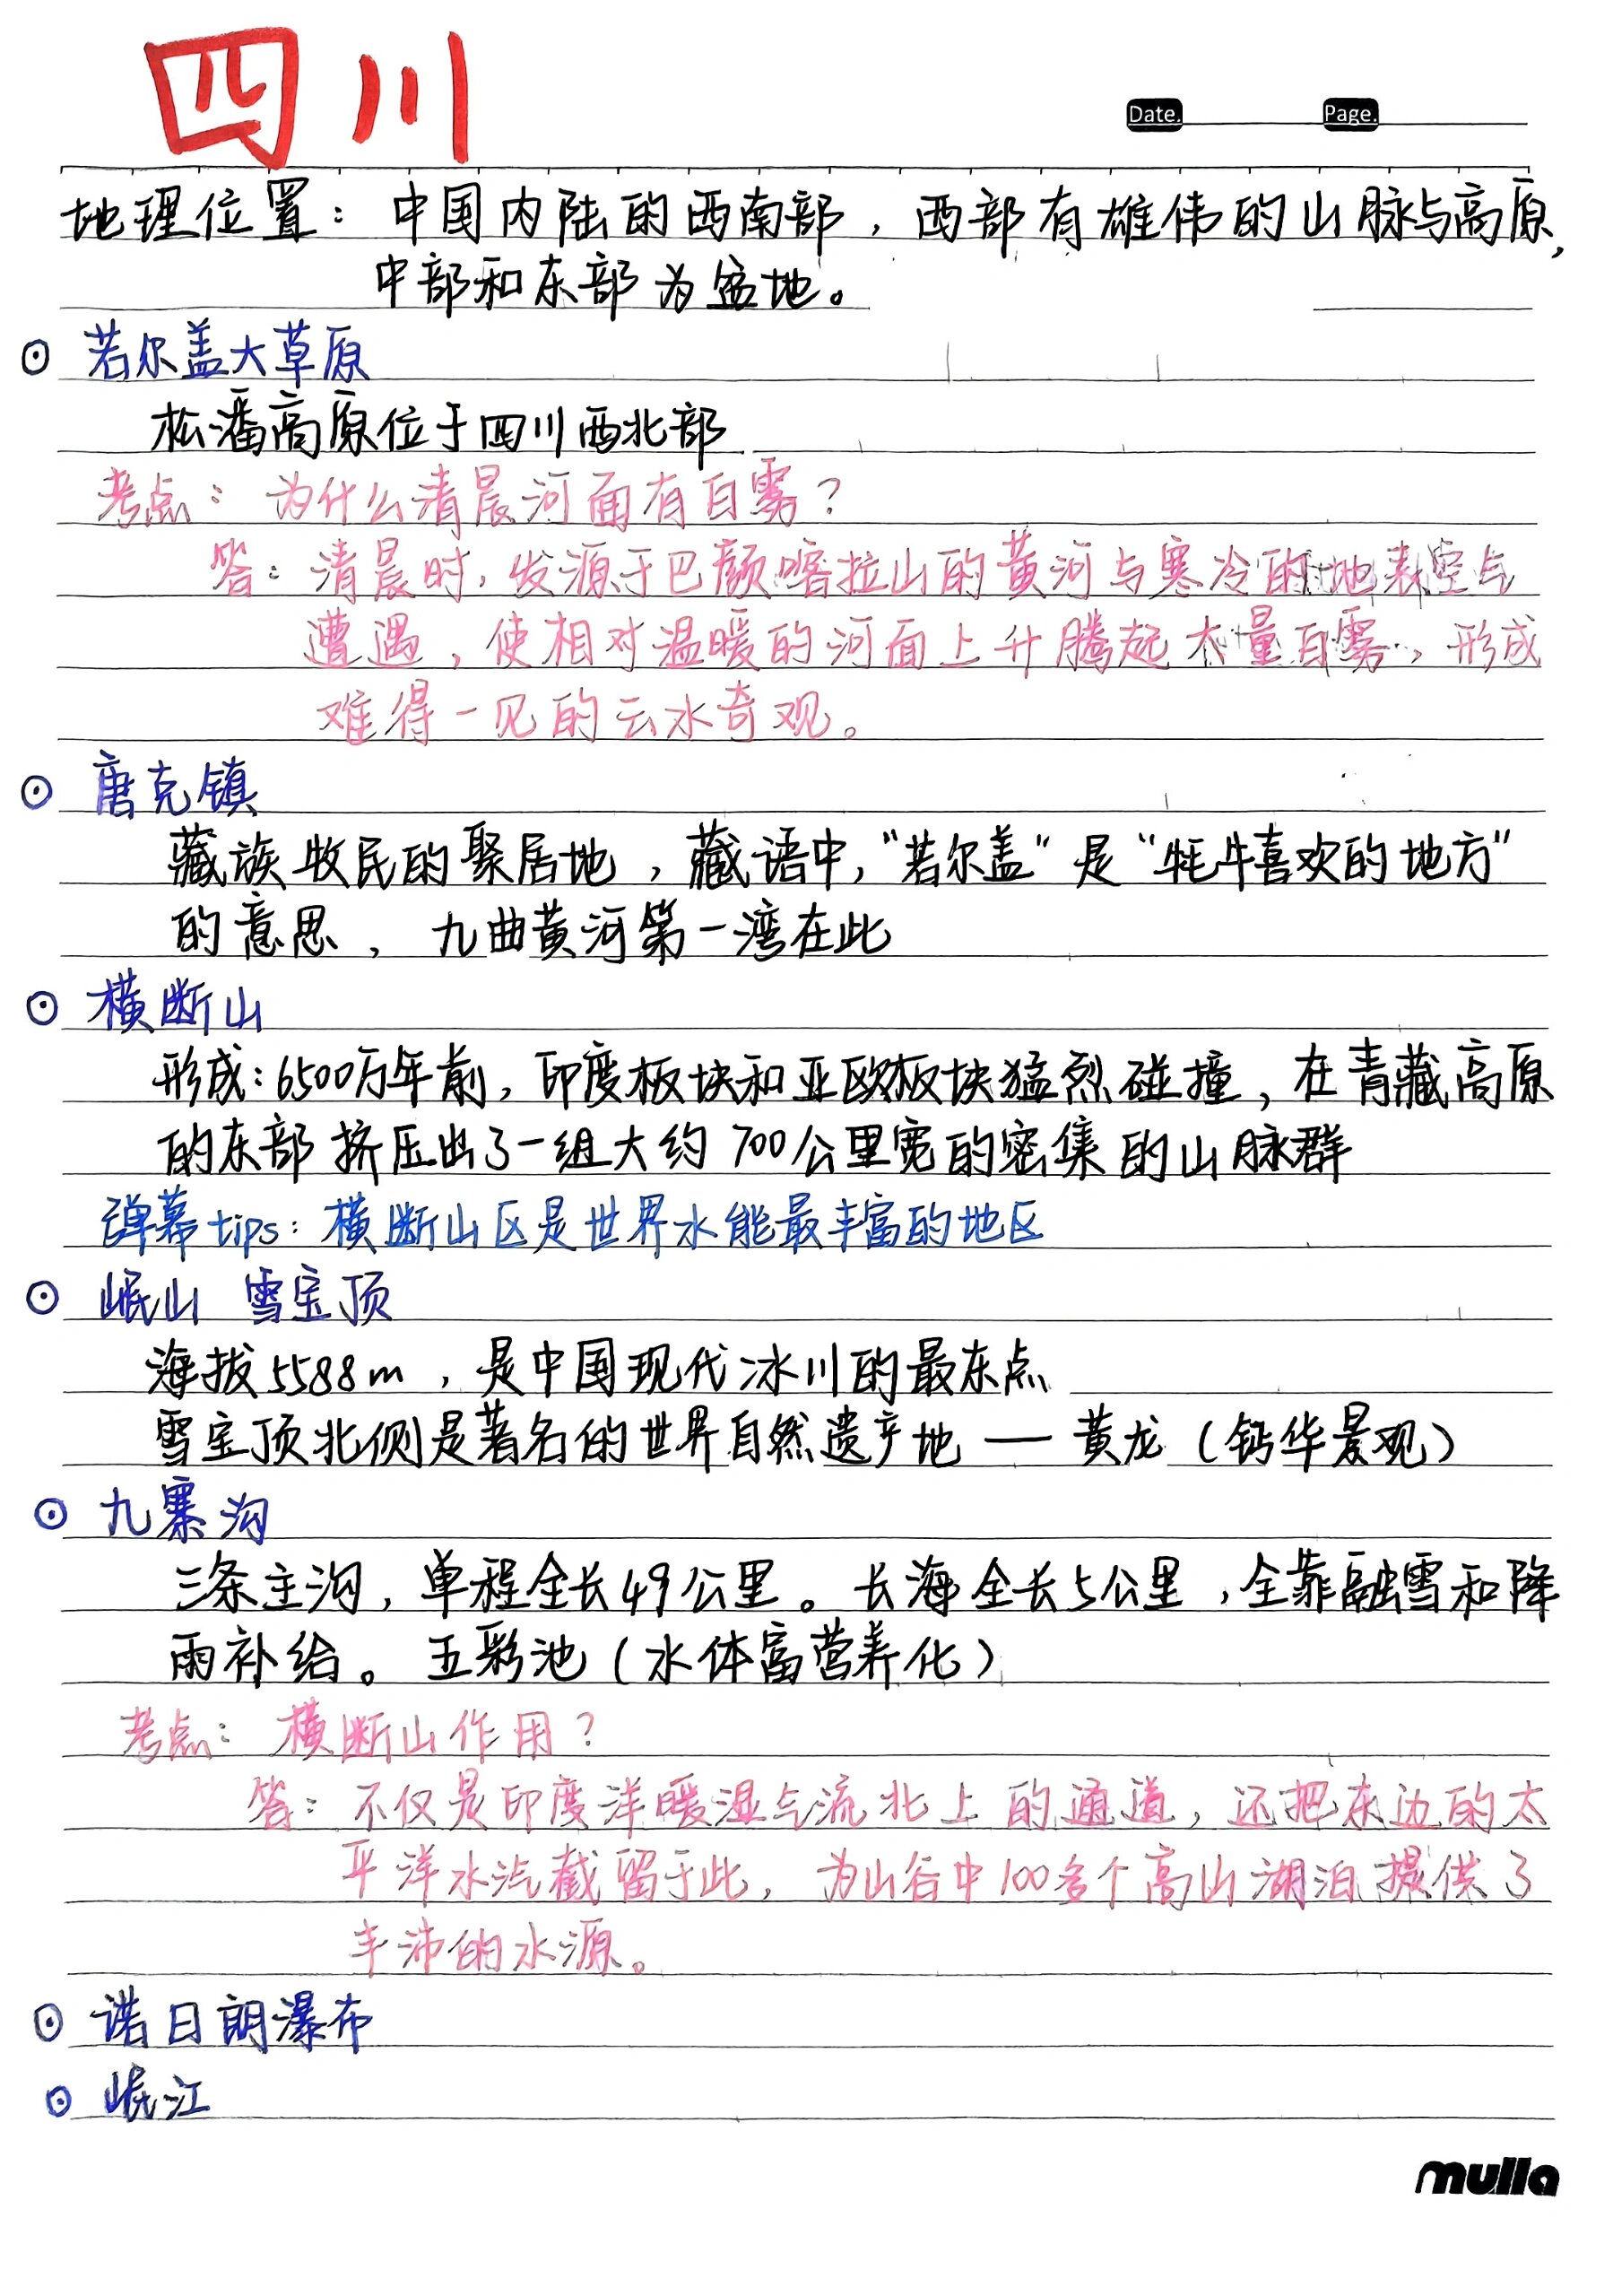 四川
Date. Page.
地理位置：中国内陆的西南部，西部有雄伟的山脉与高原，
中部和东部为盆地。
⊙ 若尔盖大草原
松潘高原位于四川西北部
考点：为什么清晨河面有白雾？
答：清晨时，发源于巴颜喀拉山的黄河与寒冷的地表空气
遭遇，使相对温暖的河面上升腾起大量白雾，形成
难得一见的云水奇观。
⊙ 唐克镇
藏族牧民的聚居地，藏语中，“若尔盖”是“牦牛喜欢的地方”
的意思，九曲黄河第一湾在此
⊙ 横断山
形成：6500万年前，印度板块和亚欧板块猛烈碰撞，在青藏高原
的东部挤压出了一组大约700公里宽的密集的山脉群
弹幕tips：横断山区是世界水能最丰富的地区
⊙ 岷山 雪宝顶
海拔5588m，是中国现代冰川的最东点
雪宝顶北侧是著名的世界自然遗产地——黄龙（钙华景观）
⊙ 九寨沟
三条主沟，单程全长49公里。长海全长5公里，全靠融雪和降
雨补给。五彩池（水体富营养化）
考点：横断山作用？
答：不仅是印度洋暖湿气流北上的通道，还把东边的太
平洋水汽截留于此，为山谷中100多个高山湖泊提供了
丰沛的水源。
⊙ 诺日朗瀑布
⊙ 岷江
mulla